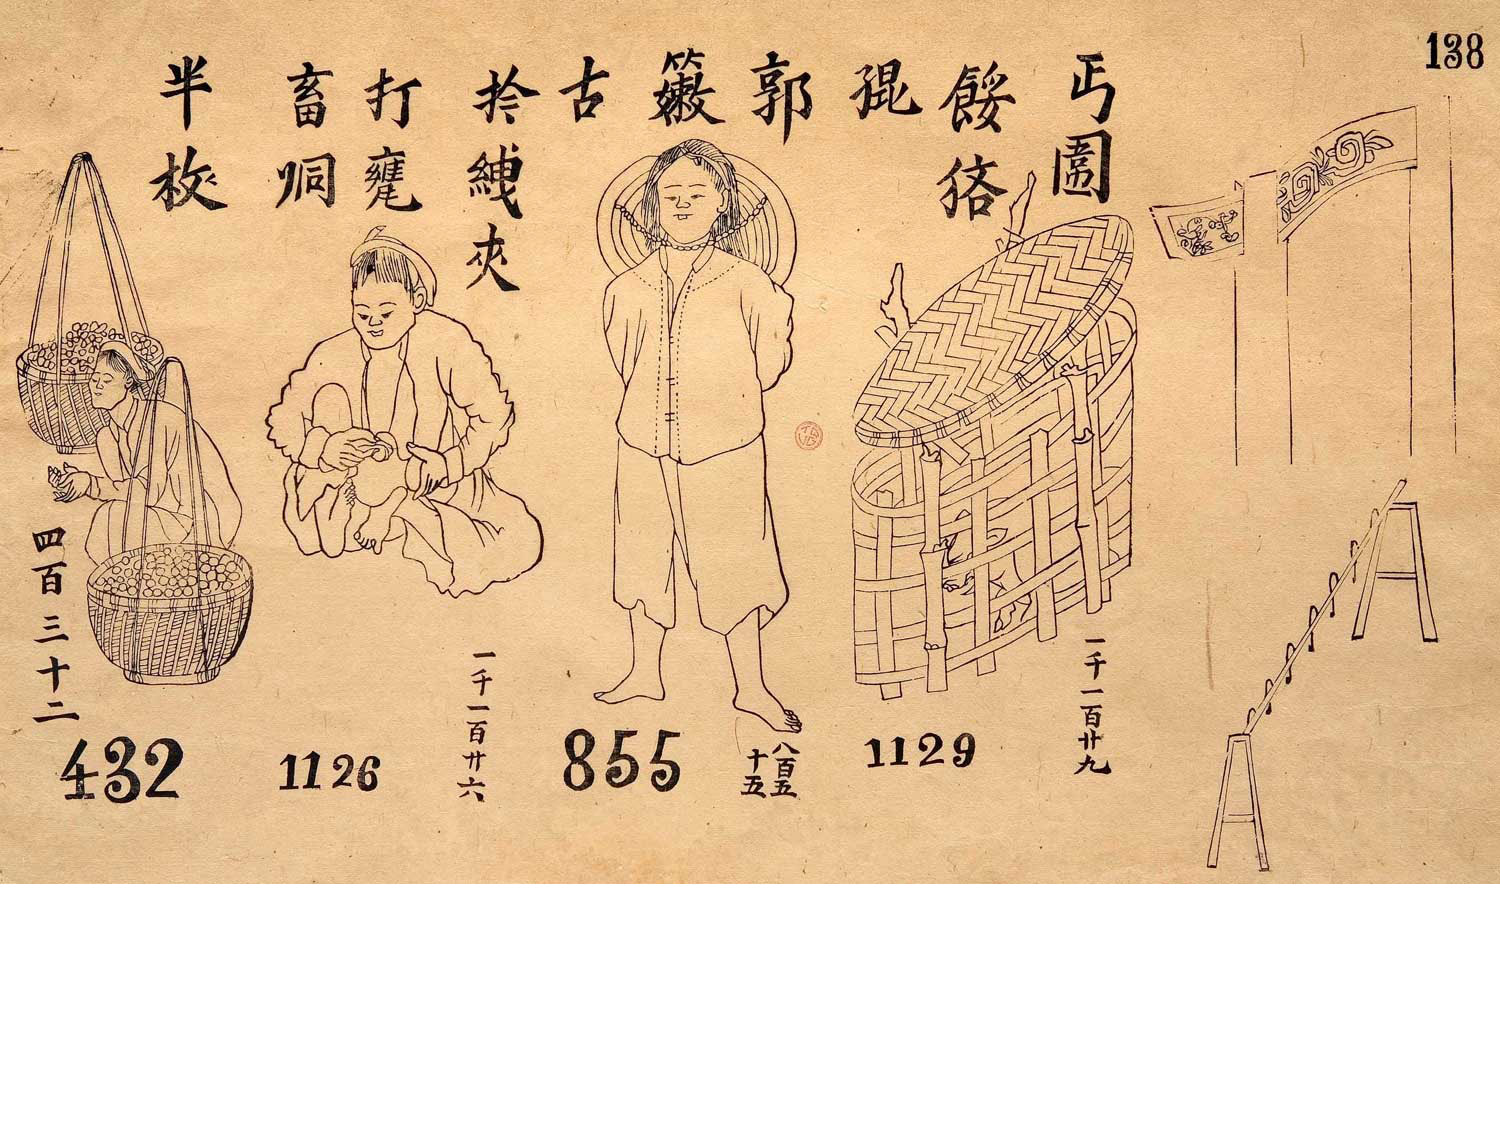 138
丐圖
餒㧯
混
郭
古
拎䋲夾
打
畜峒
半枚
一千一百廿九
1129
八百五十五
855
一千一百廿六
1126
四百三十二
432